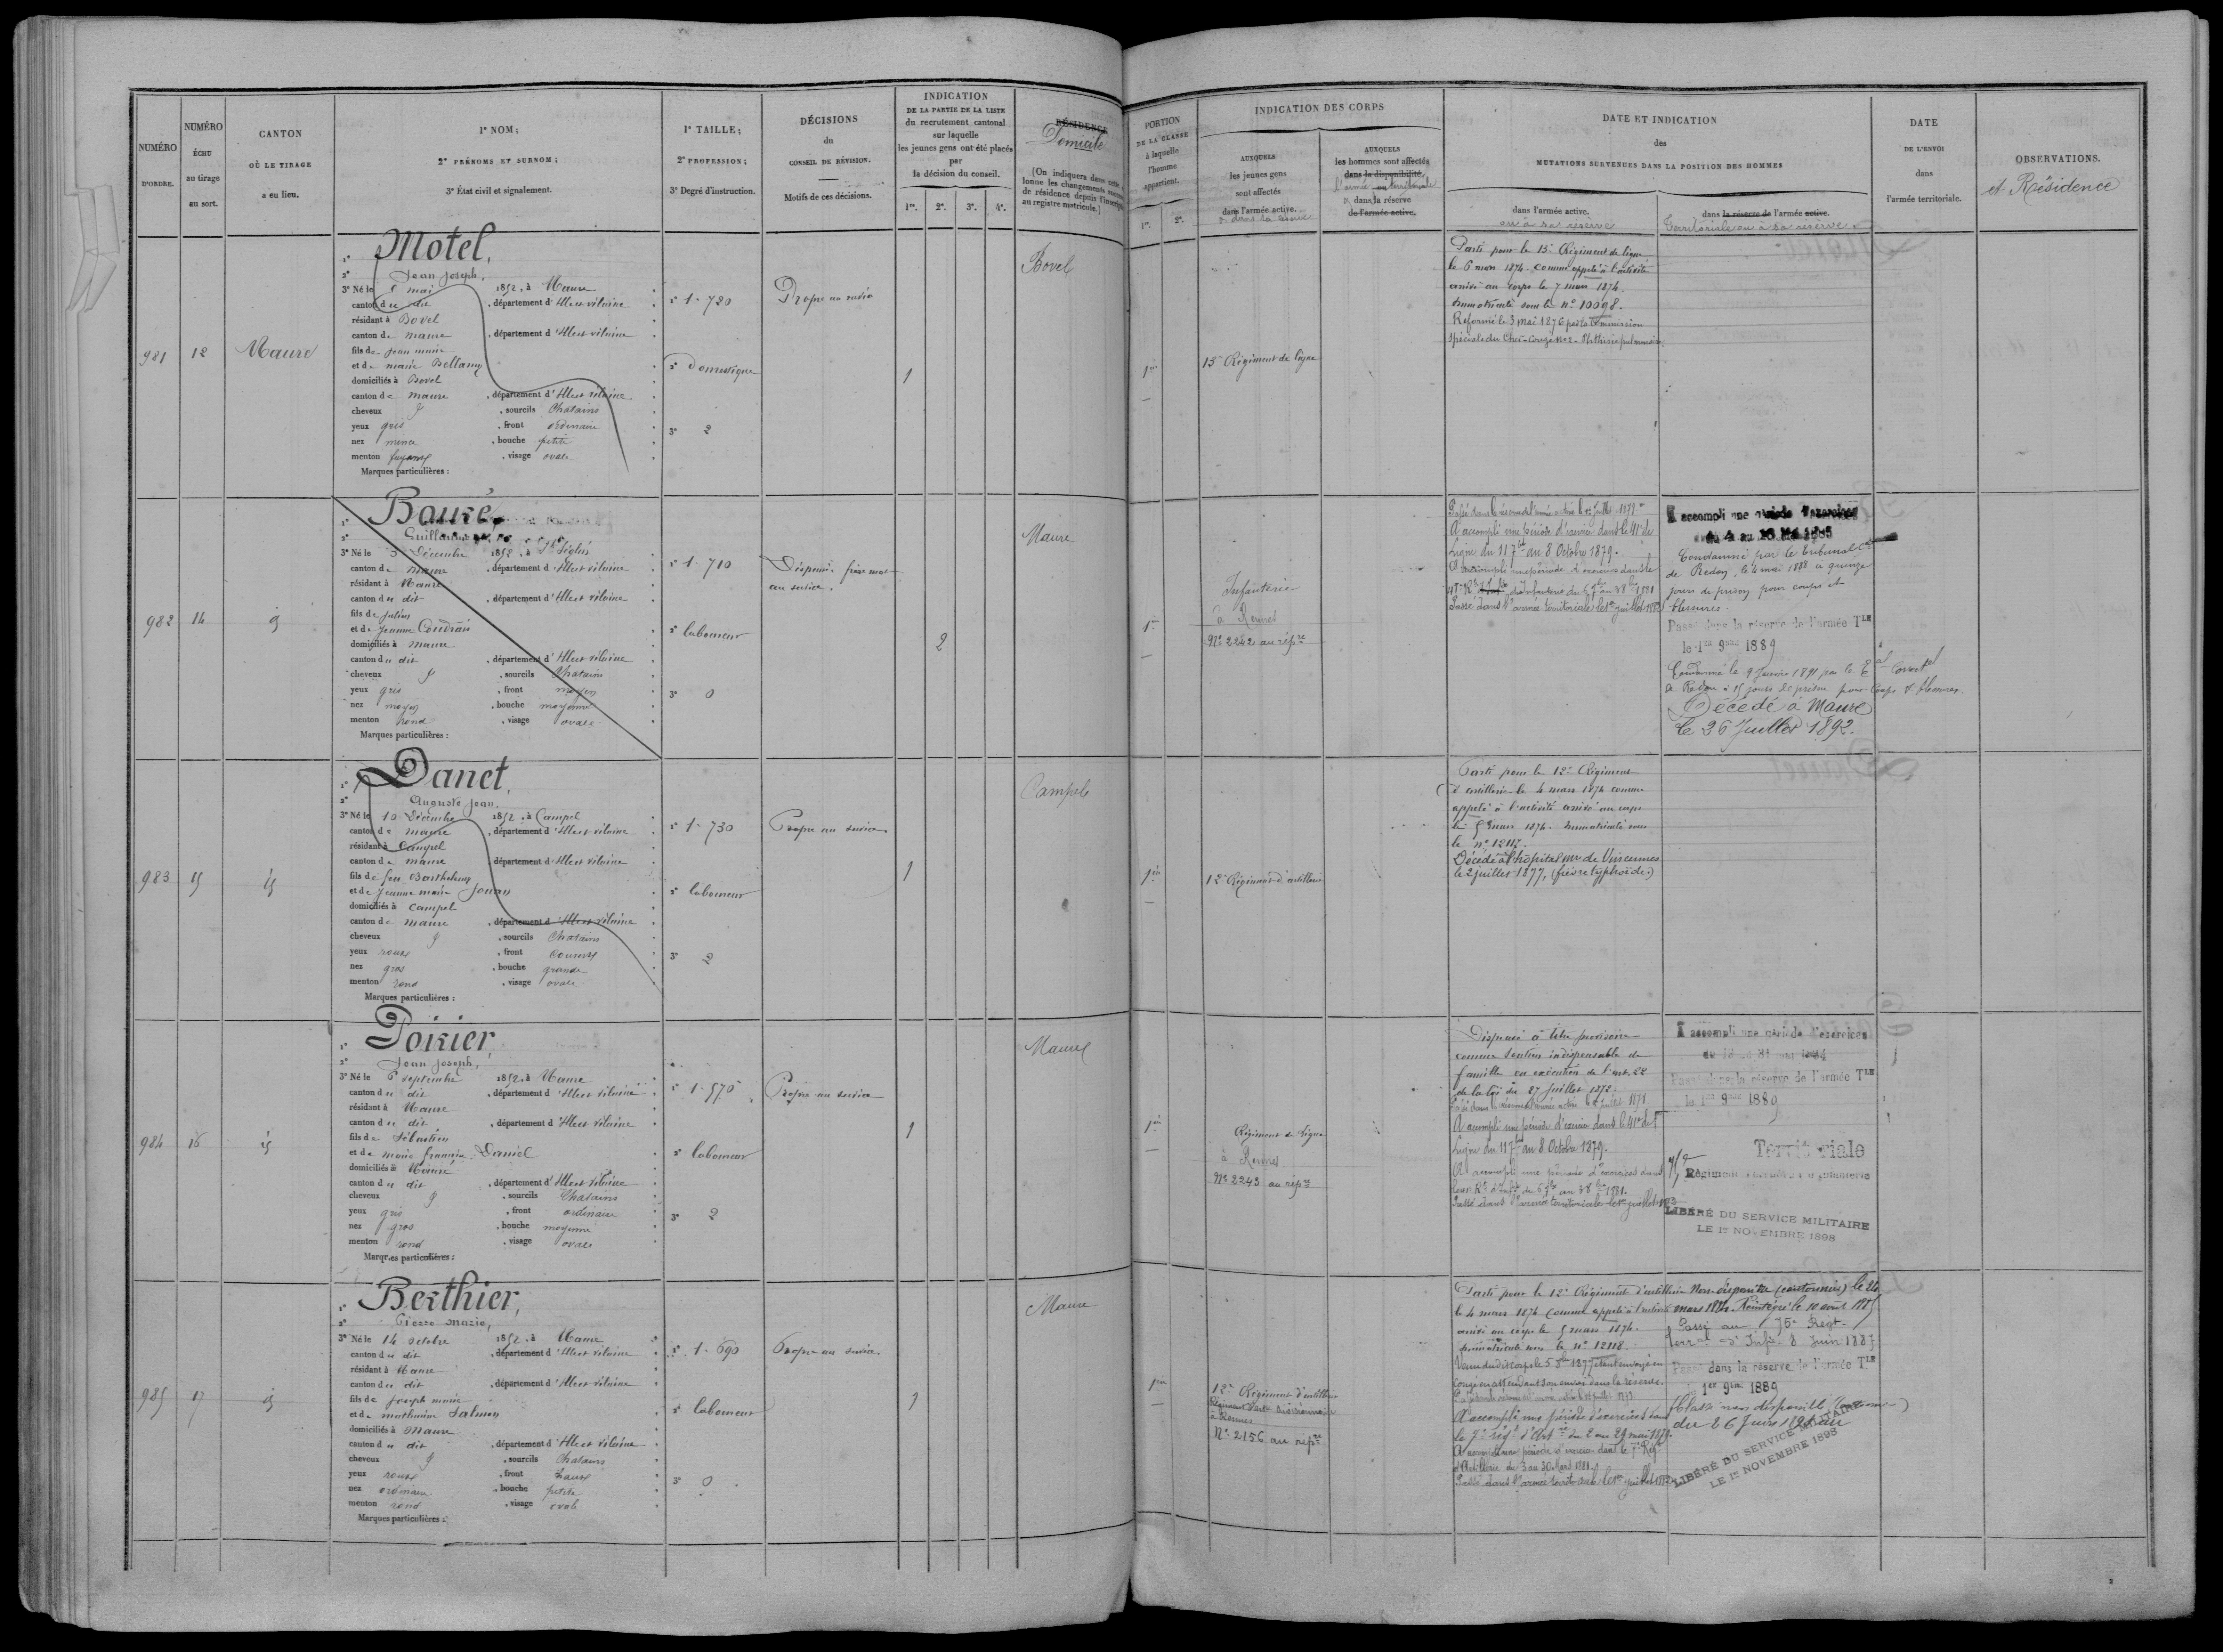 NUMÉRO
D'ORDRE.
NUMÉRO
ÉCHU
au tirage
au sort.
CANTON
OÙ LE TIRAGE
a eu lieu.
1° NOM;
2° PRÉNOMS ET SURNOM;
3° État civil et signalement.
1° TAILLE;
2° PROFESSION;
3° Degré d'instruction.
DÉCISIONS
du
CONSEIL DE RÉVISION.
Motifs de ces décisions.
INDICATION
DE LA PARTIE DE LA LISTE
du recrutement cantonal
sur laquelle
les jeunes gens ont été placés
par
la décision du conseil.
1re. 2e. 3e. 4e.
RÉSIDENCE
Domicile
(On indiquera dans cette
lonne les changements
de résidence depuis l'inscription
au registre matricule.)
PORTION
DE LA CLASSE
à laquelle
l'homme
appartient.
1re. 2e.
INDICATION DES CORPS
AUXQUELS
les jeunes gens
sont affectés
dans l'armée active.
ou dans sa réserve
AUXQUELS
les hommes sont affectés
dans la disponibilité
l'armée territoriale
ou dans la réserve
de l'armée active.
DATE ET INDICATION
des
MUTATIONS SURVENUES DANS LA POSITION DES HOMMES
dans l'armée active.
ou à sa réserve
dans la réserve de l'armée active.
Territoriale ou à sa réserve
DATE
DE L'ENVOI
dans
l'armée territoriale.
OBSERVATIONS.
et Résidence
981 12 Maure
1° Motel,
2° Jean Joseph,
3° Né le 5 mai 1852, à Maure
canton du dit, département d'Ille et vilaine
résidant à Bovel
canton de maure, département d'Ille et vilaine
fils de Jean marie
et de marie Bellamy
domiciliés à Bovel
canton de maure, département d'Ille et vilaine
cheveux, sourcils Chatains
yeux gris, front ordinaire
nez mince, bouche petite
menton fuyant, visage ovale
Marques particulières :
1° 1.720
2° Domestique
3° 2
Propre au service
1
Bovel
1re
15e Régiment de ligne
Parti pour le 15e Régiment de ligne
le 6 mars 1874 comme appelé à l'activité
arrivé au corps le 7 mars 1874.
Immatriculé sous le n° 10098.
Réformé le 3 mai 1876 par la Commission
982 14 id
1° Bouré,
2° Guillaume
3° Né le 3 Décembre 1852, à St Séglin
canton de maure, département d'Ille et vilaine
résidant à Maure
canton du dit, département d'Ille et vilaine
fils de Julien
et de Jeanne Coudrais
domiciliés à maure
canton du dit, département d'Ille et vilaine
cheveux, sourcils Chatains
yeux gris, front moyen
nez moyen, bouche moyenne
menton rond, visage ovale
Marques particulières :
1° 1.710
2° laboureur
3° 0
Dispensé frère mort
au service.
2
Maure
1re
Infanterie
à Rennes
N° 2242 au répre
A accompli une période d'exercice dans le 41e de
Ligne du 11 7bre au 8 Octobre 1879.
Passé dans l'armée territoriale le 1er juillet 1882
A accompli une période d'exercices
Condamné par le tribunal Cel
de Redon, le 4 mai 1888 à quinze
jours de prison pour coups et
blessures.
Passé dans la réserve de l'armée Tle
le 1er 9bre 1889
Condamné le 9 Janvier 1891 par le Tal Correctel
de Redon à 15 jours de prison pour Coups & blessures.
Décédé à Maure
le 26 Juillet 1892.
983 15 id
1° Danet,
2° Auguste Jean,
3° Né le 10 Décembre 1852, à Campel
canton de maure, département d'Ille et vilaine
résidant à Campel
canton de maure, département d'Ille et vilaine
fils de feu Barthelemy
et de Jeanne marie Jouan
domiciliés à Campel
canton de maure, département d'Ille et vilaine
cheveux, sourcils Chatains
yeux roux, front couvert
nez gros, bouche grande
menton rond, visage ovale
Marques particulières :
1° 1.730
2° laboureur
3° 2
Propre au service
1
Campel
1re
12e Régiment d'artillerie
Parti pour le 12e Régiment
d'artillerie le 4 mars 1874 comme
appelé à l'activité arrivé au corps
le 5 mars 1874. Immatriculé sous
le n° 12117.
Décédé à l'hôpital mre de Vincennes
le 2 juillet 1877, (fièvre typhoïde.)
984 16 id
1° Poirier,
2° Jean Joseph,
3° Né le 6 septembre 1852, à Maure
canton du dit, département d'Ille et vilaine
résidant à Maure
canton du dit, département d'Ille et vilaine
fils de Sébastien
et de marie françoise Daniel
domiciliés à Maure
canton du dit, département d'Ille et vilaine
cheveux, sourcils Chatains
yeux gris, front ordinaire
nez gros, bouche moyenne
menton rond, visage ovale
Marques particulières :
1° 1.575
2° laboureur
3° 2
Propre au service
1
Maure
1re
Régiment de ligne
à Rennes
N° 2243 au répre
Dispensé à titre provisoire
comme soutien indispensable de
famille en exécution de l'art. 22
de la loi du 27 Juillet 1872.
A accompli une période d'exercice dans le 41e de
Ligne du 11 7bre au 8 Octobre 1879.
A accompli une période d'exercices dans
Passé dans l'armée territoriale le 1er juillet
A accompli une période d'exercices
Passé dans la réserve de l'armée Tle
le 1er 9bre 1889
Territoriale
75e
LIBÉRÉ DU SERVICE MILITAIRE
LE 1er NOVEMBRE 1898
985 17 id
1° Berthier,
2° Pierre Marie,
3° Né le 14 octobre 1852, à Maure
canton du dit, département d'Ille et vilaine
résidant à Maure
canton du dit, département d'Ille et vilaine
fils de Joseph marie
et de mathurine Salmon
domiciliés à Maure
canton du dit, département d'Ille et vilaine
cheveux, sourcils Chatains
yeux roux, front haut
nez ordinaire, bouche petite
menton rond, visage ovale
Marques particulières :
1° 1.690
2° laboureur
3° 0
Propre au service.
1
Maure
1re
12e Régiment d'artillerie
à Rennes
N° 2156 au répre
Parti pour le 12e Régiment d'artillerie
le 4 mars 1874 comme appelé à l'activité
arrivé au corps le 5 mars 1874.
Immatriculé sous le n° 12118.
congé en attendant son envoi dans la réserve.
A accompli une période d'exercices dans
le 7e régt d'Art rie du 2 au 29 mai 1879.
A accompli une période d'exercices dans le 7e Régt
d'Artillerie du 3 au 30 Mars 1881.
Passé dans l'armée territoriale le 1er juillet
Non-disponible (cantonnier) le 24
mars 1884. Réintégré le 10 août 1885
Passé au 75e Regt
Terral d'Infie 8 Juin 1887
Passé dans la réserve de l'armée Tle
1er 9bre 1889
Classé non disponible
LIBÉRÉ DU SERVICE MILITAIRE
LE 1er NOVEMBRE 1898